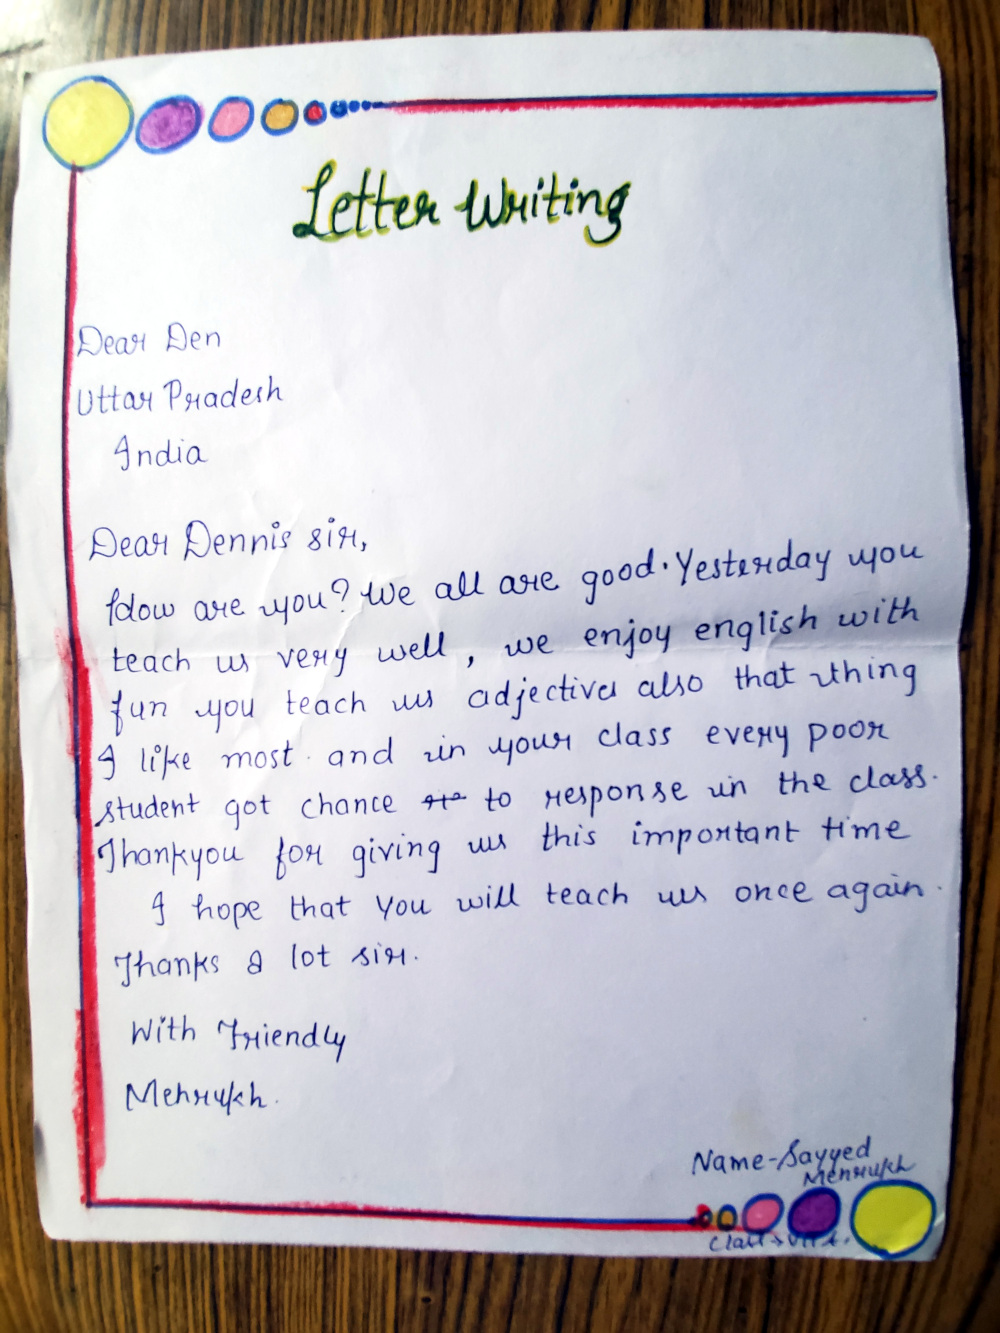 Letter Writing
Dear Den
Uttar Pradesh
India
Dear Dennis sir,
How are you? We all are good. Yesterday you
teach us very well, we enjoy english with
fun you teach us adjectives also that thing
I like most. and in your class every poor
student got chance to response in the class.
Thankyou for giving us this important time
I hope that You will teach us once again.
Thanks a lot sir.
With Friendly
Mehrukh.
Name-Sayyed
Mehrukh
Class→